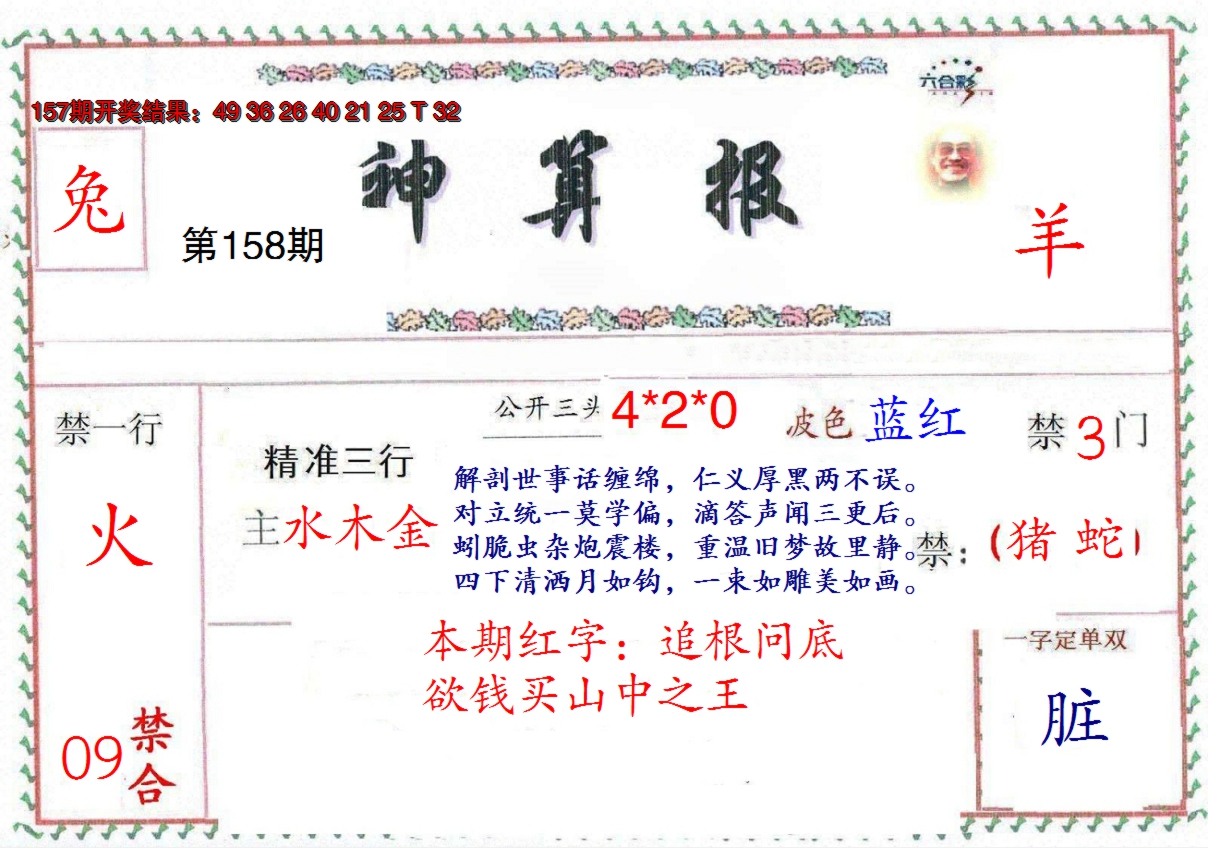 六合彩
157期开奖结果：49 36 26 40 21 25 T 32
神算报
兔
第158期
羊
公开三头 4*2*0
波色 蓝红
禁一行
禁3门
精准三行
主水木金
火
解剖世事话缠绵，仁义厚黑两不误。
对立统一莫学偏，滴答声闻三更后。
蚓脆虫杂炮震楼，重温旧梦故里静。
四下清洒月如钩，一束如雕美如画。
禁：(猪 蛇)
本期红字：追根问底
欲钱买山中之王
一字定单双
脏
09
禁合